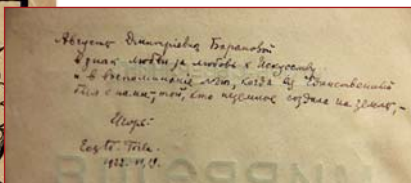 Августе Дмитріевне Барановой
в знак любви за любовь к Искусству
и в воспоминаніе лет, когда "Единственный"
был с нами, — той, кто неземное создала на земле, —
Игорь.
Eesti. Toila.
1922.